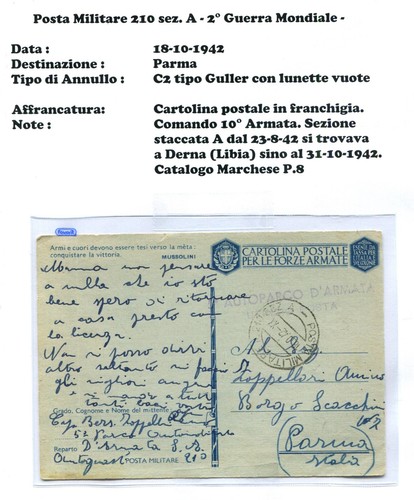 Posta Militare 210 sez. A - 2° Guerra Mondiale -
Data : 18-10-1942
Destinazione : Parma
Tipo di Annullo : C2 tipo Guller con lunette vuote
Affrancatura: Cartolina postale in franchigia.
Note : Comando 10° Armata. Sezione
staccata A dal 23-8-42 si trovava
a Derna (Libia) sino al 31-10-1942.
Catalogo Marchese P.8
Armi e cuori devono essere tesi verso la mèta:
conquistare la vittoria. MUSSOLINI
CARTOLINA POSTALE
PER LE FORZE ARMATE
Mamma non pensare
a nulla che io sto
bene spero di ritornare
a casa presto con
la licenza.
Non vi posso dirvi
altro soltanto vi
gli migliori auguri
Grado, Cognome e Nome del mittente
Reparto D'Armata
POSTA MILITARE 210
AUTOPARCO D'ARMATA
POSTA MILITARE
Al
Zoppellari
Borgo Scacchini
Parma
Italia